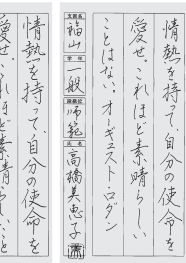 情熱を持って、自分の使命を
愛せ。これほど素晴らしい
ことはない。オーギュスト・ロダン
支部名
福山
学年
一般
段級位
師範
氏名
高橋美恵子
情熱を持って、自分の使命を